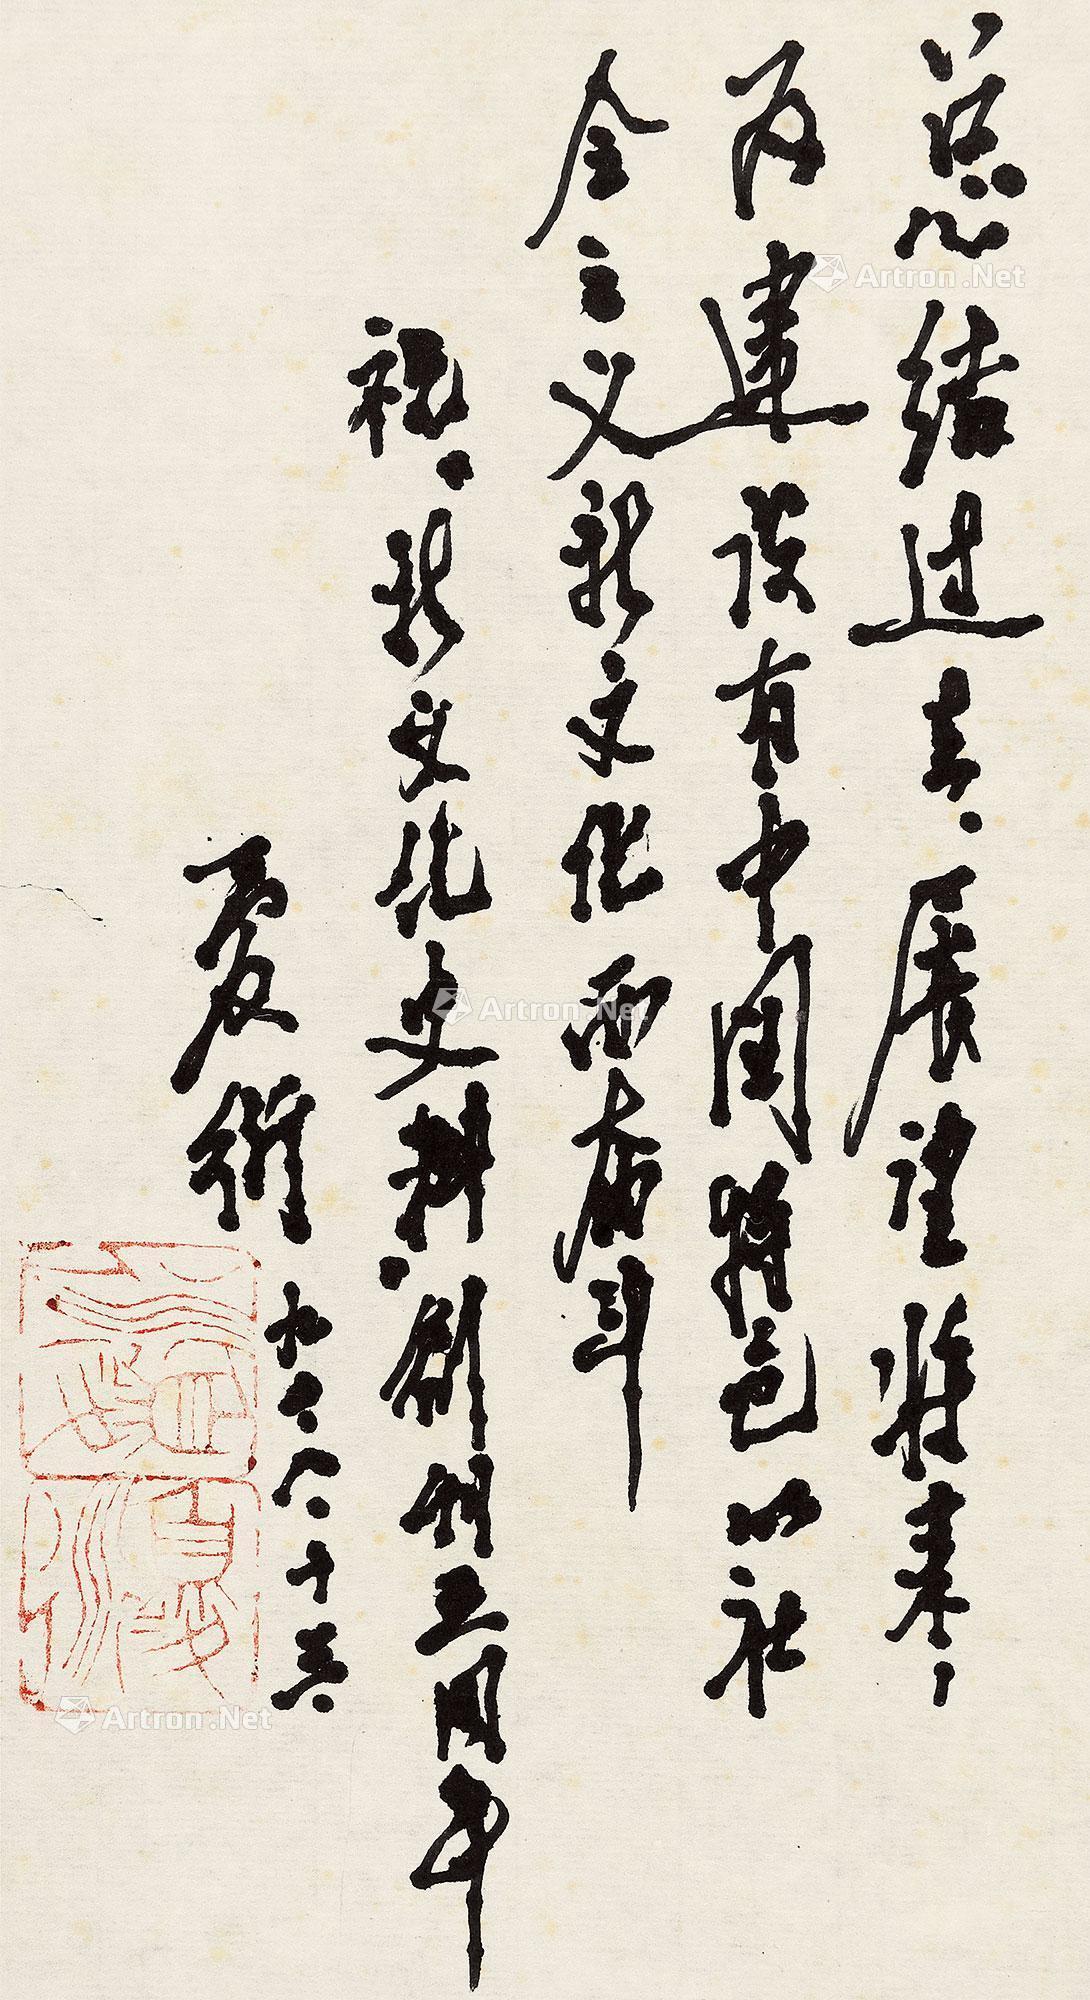 总结过去、展望将来，
为建设有中国特色的社
会主义新文化而奋斗
祝、新文化史料、创刊五周年
夏衍
Artron.Net
Artron.Net
Artron.Net